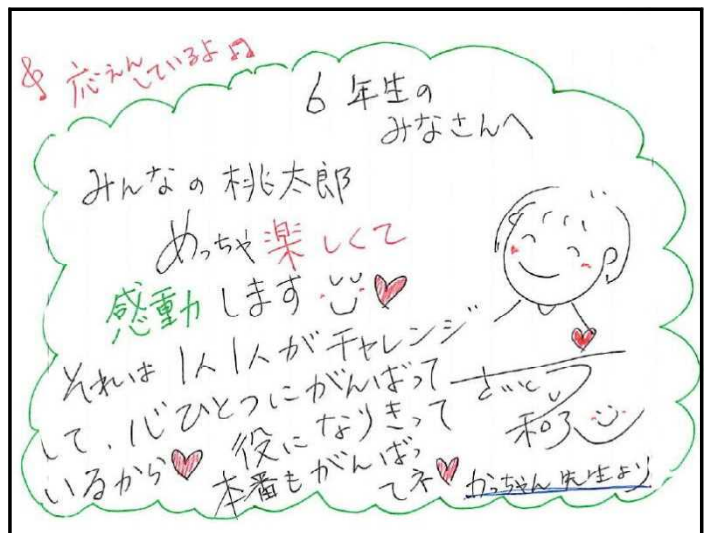 応えんしているよ♫
6年生の
みなさんへ
みんなの桃太郎
めっちゃ楽しくて
感動します
それは1人1人がチャレンジ
して、心ひとつにがんばって
いるから♥ 役になりきって
本番もがんばっ
てネ♥
かっちゃん先生より